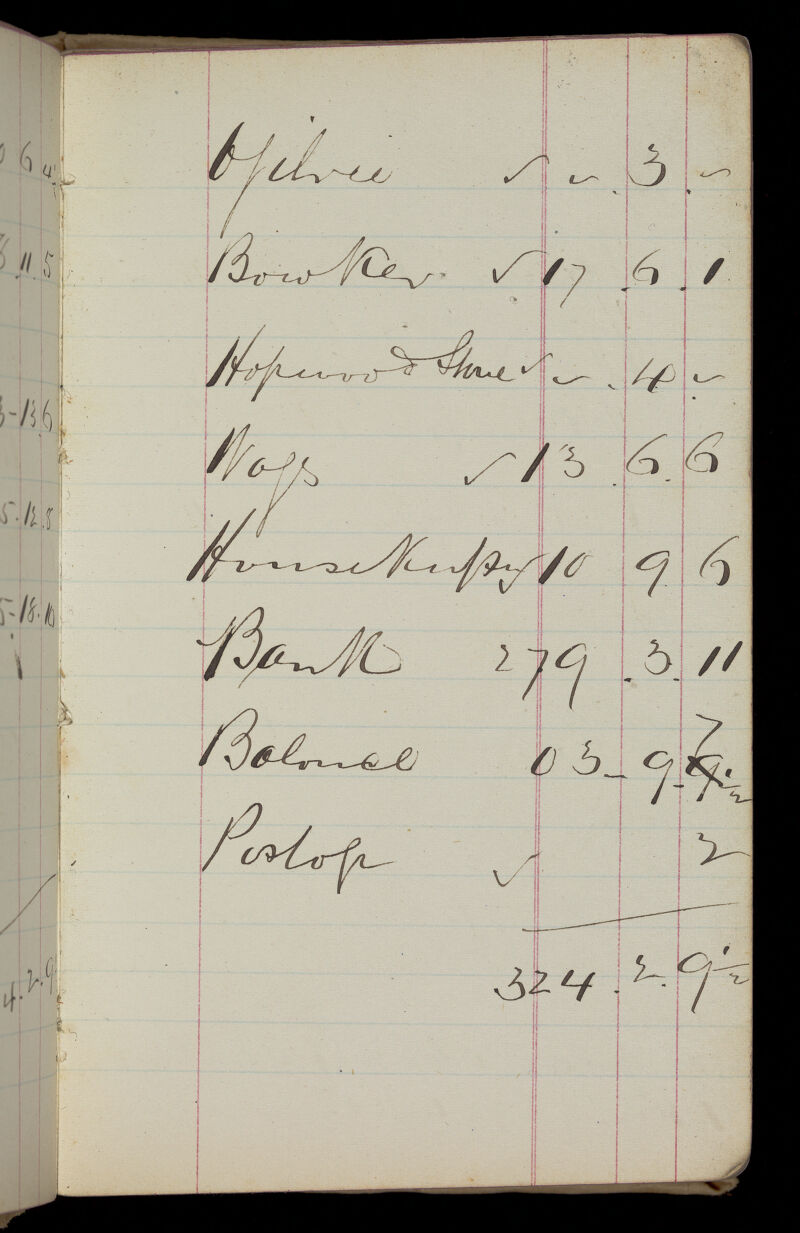 0 6 4
Ogilvie ✓ ✓ . 3 . ✓
8 . 11 . 5
Bowker ✓ 17 . 6 . 1
Hopwood & Shone ✓ ✓ . 4 . ✓
3 - 13 6
Wags ✓ 13 . 6 . 6
5 . 12 . 8
Housekeeping 10 9 6
5 - 18 . 10
Bank 279 . 3 . 11
7
Balance 03 - 9 - 9 ½
Postage ✓ 2
4 . 2 . 9
324 . 2 . 9 ½